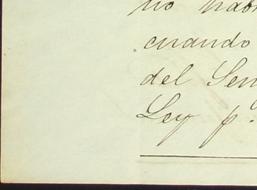 no habr
cuando
del Sen
Ley p.